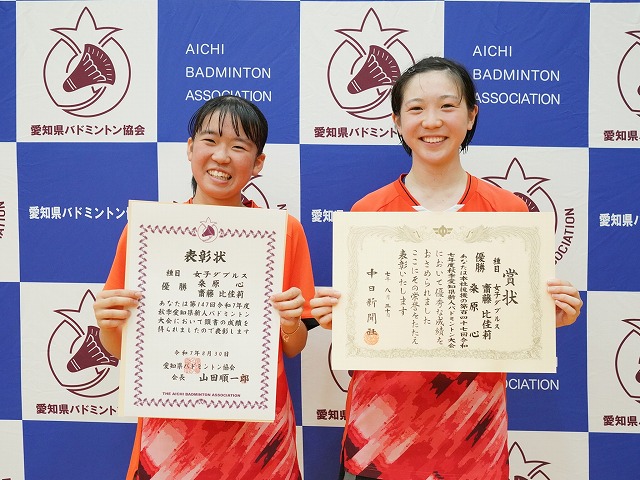 愛知県バドミントン協会
AICHI
BADMINTON
ASSOCIATION
愛知県バドミントン協会
AICHI
BADMINTON
ASSOCIATION
愛知県バドミントン協会
愛知県バドミントン協会
愛知県バドミントン
表彰状
種目 女子ダブルス
優勝 桑原 心
齋藤 比佳莉
あなたは第147回令和7年度
秋季愛知県新人バドミントン
大会において頭書の成績を
得られましたので表彰します
令和7年8月30日
愛知県バドミントン協会
会長 山田順一郎
THE AICHI BADMINTON ASSOCIATION
賞状
種目 女子ダブルス
優勝 齋藤 比佳莉
桑原 心
あなたは本社後援の第百四十七回令和
七年度秋季愛知県新人バドミントン大会
において優秀な成績を
おさめられました
ここにその栄誉をたたえ
表彰いたします
七年八月三十日
中日新聞社
愛知県バ